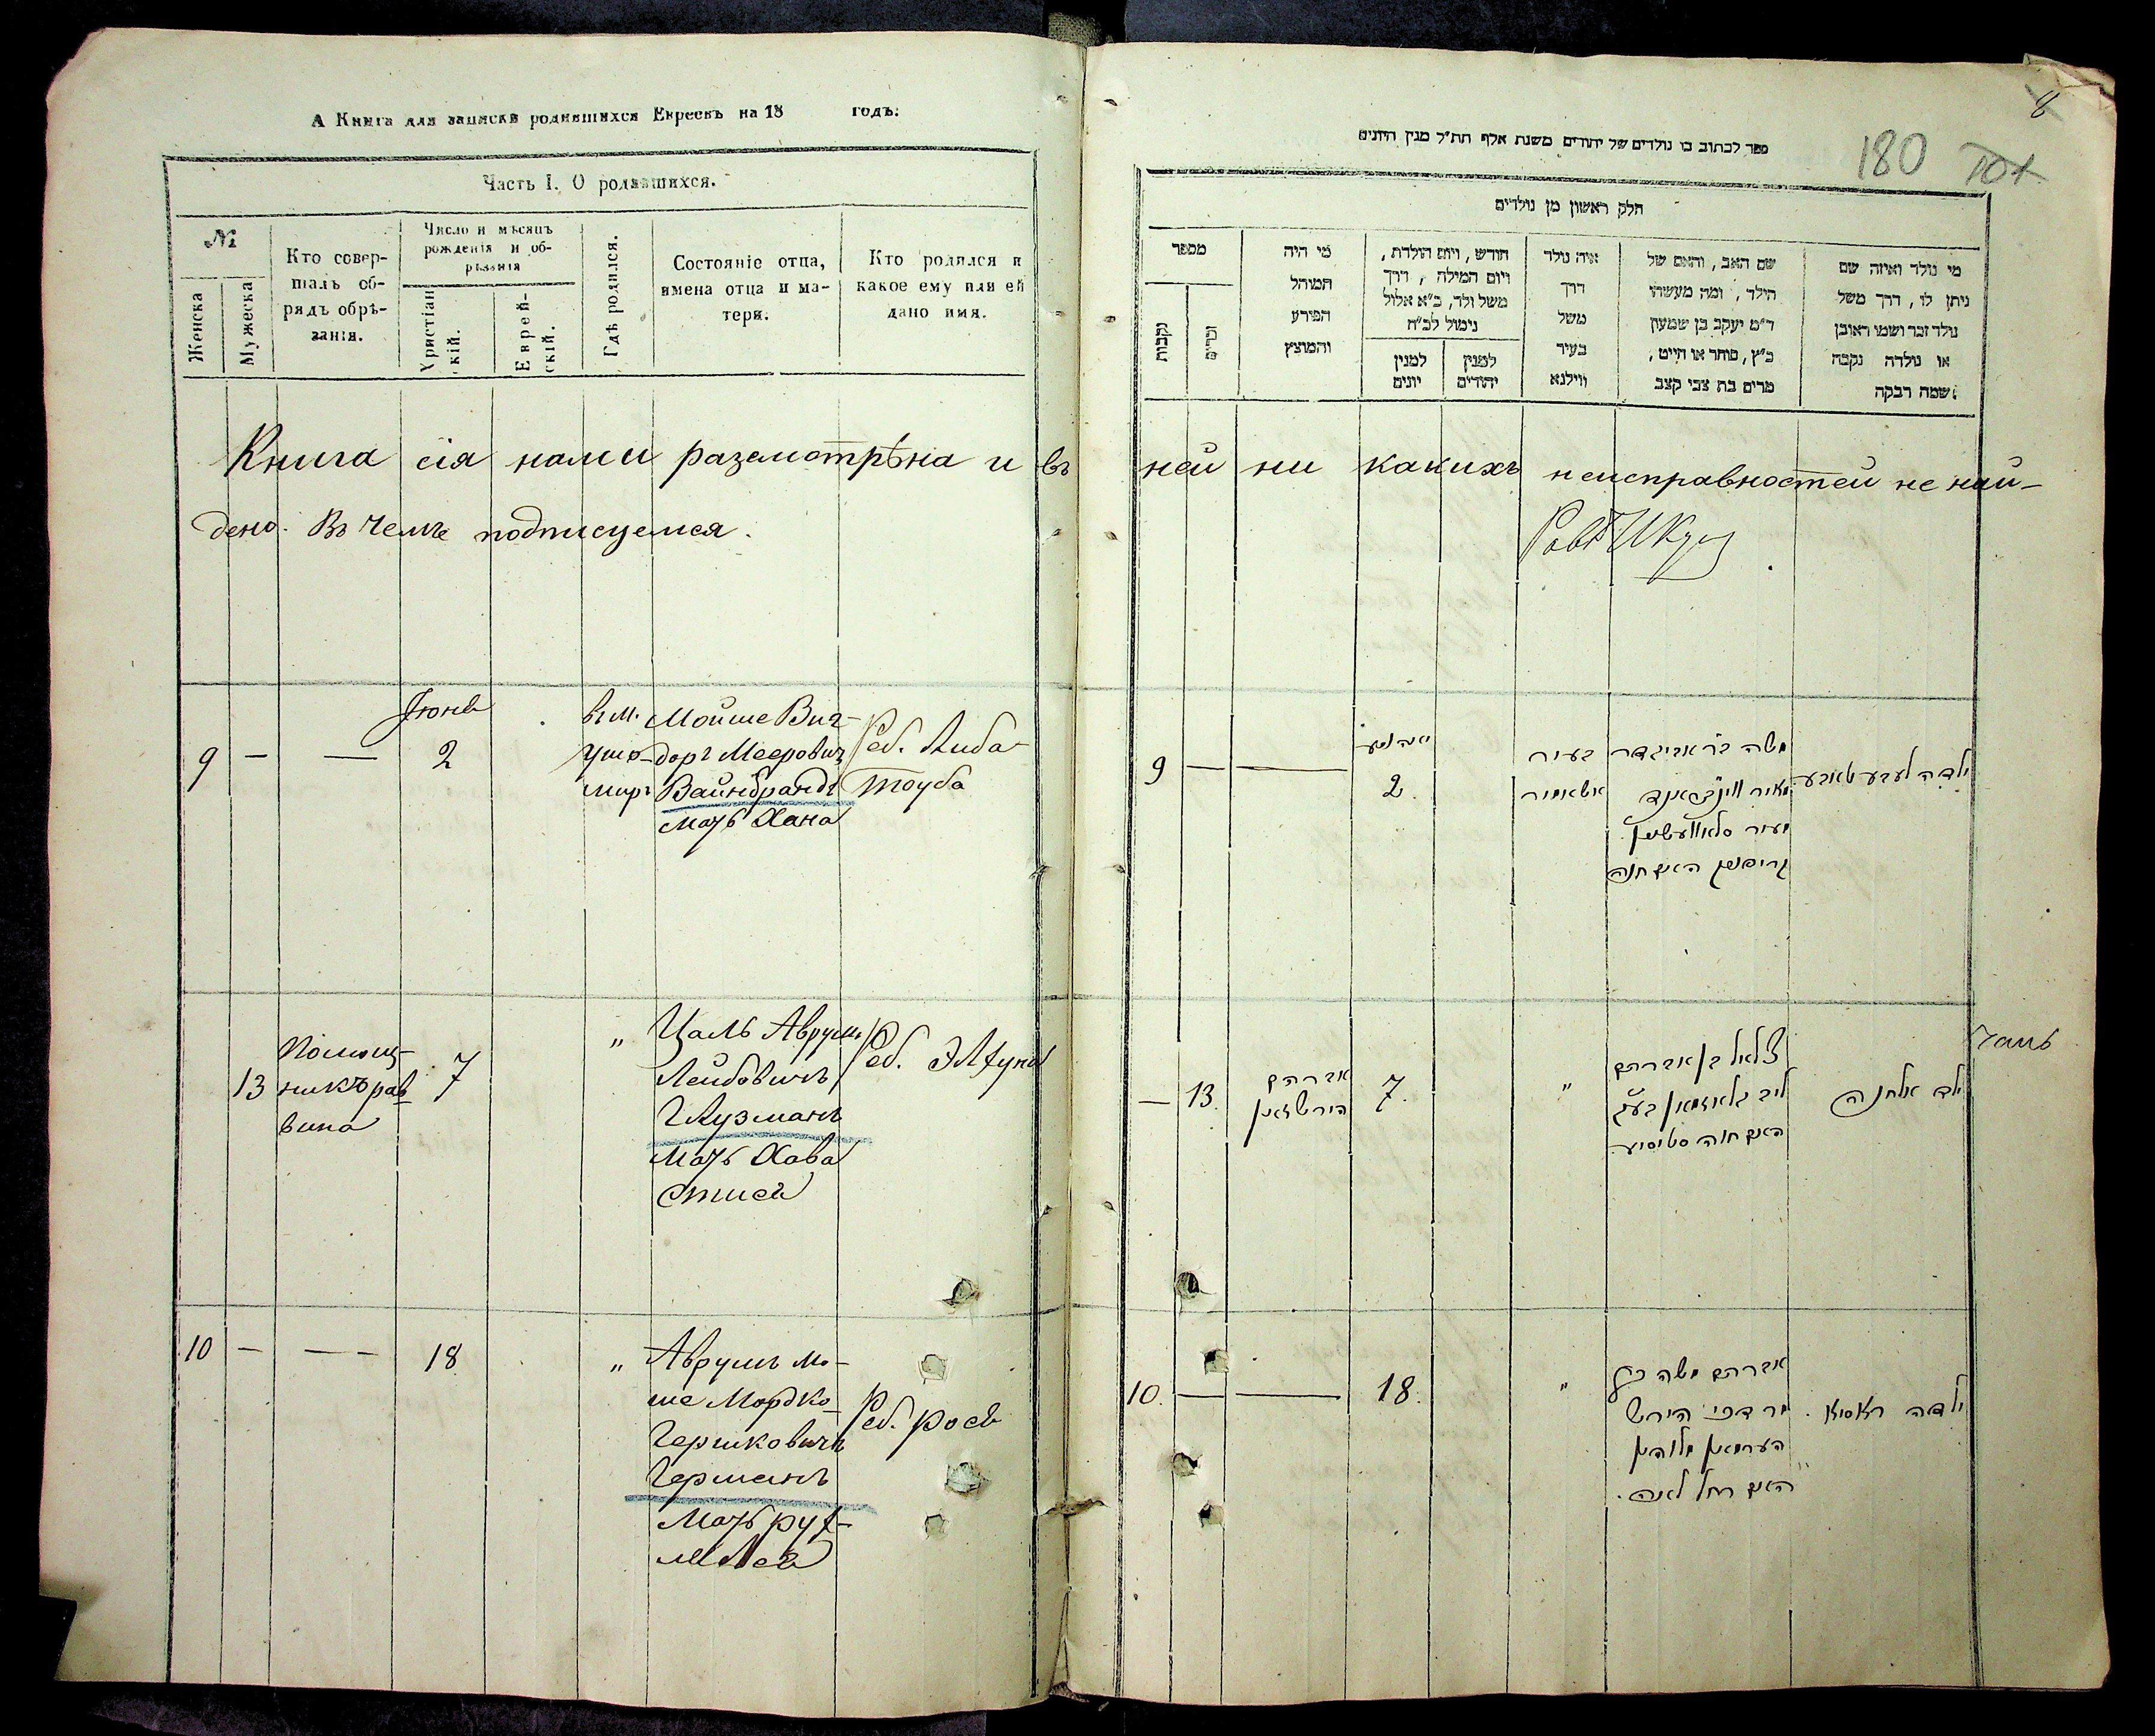 А Книга для записки родившихся Евреевъ на 18 годъ:
Часть I. О родившихся.
№
Женска
Мужеска
Кто совер-
шалъ об-
рядъ обрѣ-
занія.
Число и мѣсяцъ
рожденія и об-
рѣзанія
Христіан
скій.
Еврей-
скій.
Гдѣ родился.
Состояніе отца,
имена отца и ма-
тери.
Кто родился и
какое ему или ей
дано имя.
Книга сія нами разсмотрѣна и въ
дено. Въ чемъ подписуемся.
Іюнь
9 — — 2
въ м.
Ушо-
миръ
Мойше Виг-
доръ Мееровичъ
Вайнбрандъ
мать Хана
Реб. Либа
Тоуба
13
Помощ-
никъ рав
вина
7
"
Цаль Аврумъ
Лейбовичъ
Глузманъ
Мать Хава
Стися
Реб. Элхуна
10 — — 18
"
Аврумъ Мо-
ше Мордко
Гершковичъ
Германъ
Мать рух-
ля Лея
Реб. рося
8
180
ספר לכתוב בו נולדים של יהודים משנת אלף תת״ל מנין היונים
חלק ראשון מן נולדים
מספר
נקבות
זכרים
מי היה
המוהל
הפורע
והמוצץ
חודש, ויום הולדת,
ויום המילה, דרך
משל ולד, כ״א אלול
נימול לכ״ח
למנין
יונים
למנין
יהודים
איה נולד
דרך
משל
בעיר
ווילנא
שם האב, והאם של
הילד, ומה מעשהו
ר״מ יעקב בן שמעון
כ״ץ, סוחר או חייט,
מרים בת צבי קצב
מי נולד ואיזה שם
ניתן לו, דרך משל
נולד זכר ושמו ראובן
או נולדה נקבה
שמה רבקה
ней ни какихъ неисправностей не най-
9 — — 2.
בעיר
משה
האם חנה
ילדה
— 13.
אברהם
7.
"
בצלאל בן אברהם
ליב גלאזמאן
האם חוה סטיסיע
ילד אלחנה
10. — — 18.
"
אברהם משה
מרדכי הירש
הערמאן
האם רחל לאה.
ילדה ראסיא.